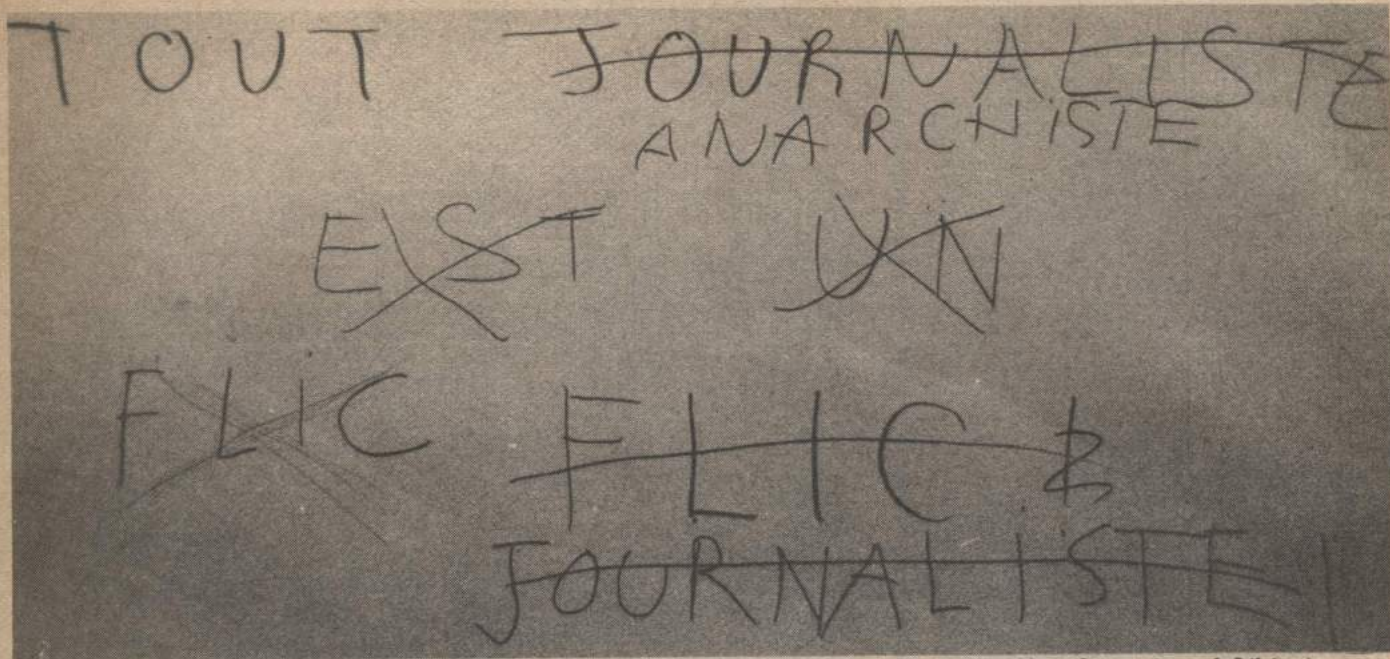 TOUT JOURNALISTE
ANARCHISTE
EST UN
FLIC FLIC
JOURNALISTE